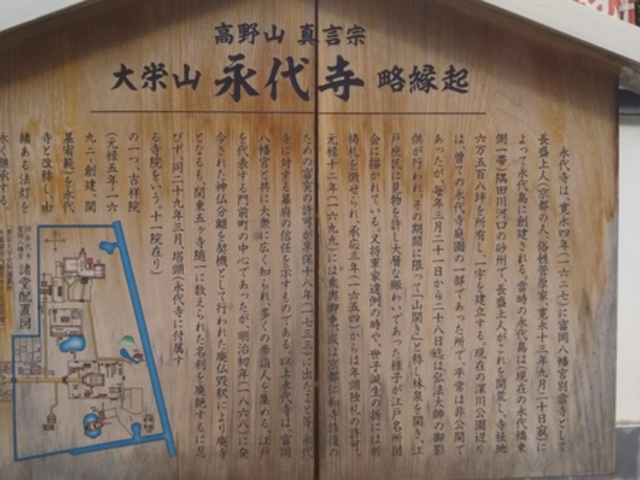 高野山 真言宗
大栄山 永代寺 略縁起
永代寺は、寛永四年（一六二七）に富岡八幡宮別当寺として
長盛上人（京都の人、俗姓菅原家、寛永十三年九月二十日寂）に
よって永代島に創建される。当時の永代島は（現在の永代橋東
側一帯）隅田川河口の砂州で、長盛上人がこれを開策し、寺社地
六万五百八坪を所有し、一宇を建立する。現在の深川公園辺り
は、曽ての永代寺庭園の一部であった所で、平常は非公開で
あったが、毎年三月二十一日から二十八日迄は弘法大師の御影
供が行われ、その期間に限って「山開き」と称し林泉を開き、江
戸庶民に見物を許し大層な賑わいであった様子が江戸名所図
会に描かれている。又将軍家違例の時や、世子誕生の折には祈
祷札を献ぜられ、承応三年（一六五四）からは年頭独礼の許可、
元禄十二年（一六九九）には乗輿御免、或は京都仁和寺修復の
ための富突の許可が享保十八年（一七三三）に出たこと等、永代
寺に対する幕府の信任を示すものである。以上永代寺は、富岡
八幡宮と共に大衆に広く知られ、多くの参詣人を集める。江戸
を代表する門前町の中心であったが、明治初年（一八六八）に発
令された神仏分離を契機として行われた廃仏毀釈により廃寺
となるも、関東五ヶ寺随一に数えられた名刹を廃絶するに忍
びず、同二十九年三月、塔頭（永代寺に付属す
る寺院をいう。十一院在り）
の一つ、吉祥院
（元禄五年・一六
九二・創建、開
基宥範）を永代
寺と改称し、由
緒ある法灯を
永く継承する。
永代寺
富岡八幡宮 諸堂配置図